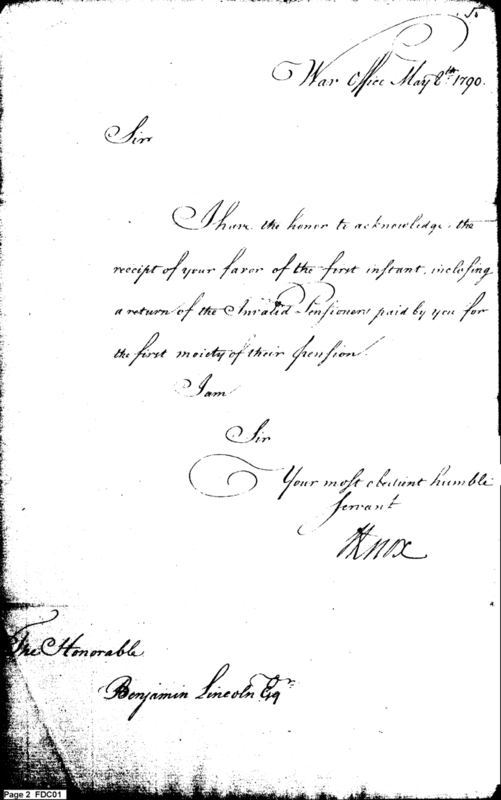 War Office May 8th 1790.
Sir
I have the honor to acknowledge the
receipt of your favor of the first instant, inclosing
a return of the Invalid Pensioners paid by you for
the first moiety of their pension.
I am
Sir
Your most obedient humble
servant
HKnox
The Honorable
Benjamin Lincoln Esqr
Page 2 FDC01